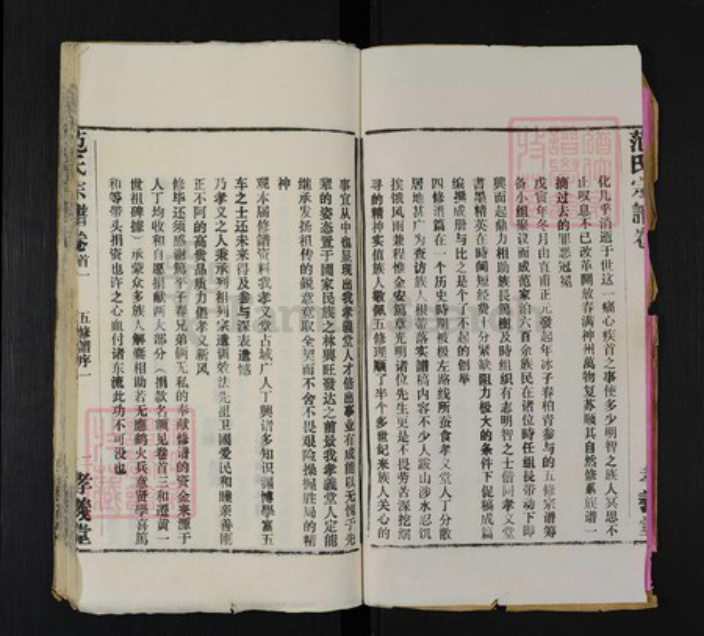 范氏宗譜卷
化几乎消逝于世这一痛心疾首之事使多少明智之族人冥思不
止叹息不已改革開放春满神州萬物复苏顺其自然修系族谱一
摘过去的罪恶冠冕
戊寅年冬月由直甫正元發起年冰子春柏青参与的五修宗谱筹
备小组聚议而成范家冶六百余族民在诸位時任组長带动下即
興而起鼎力相助族長篤樹及時組織有志明智之士偕同孝义堂
書墨精英在時间短经费十分紧缺阻力极大的条件下促稿成篇
編撰成册与比之是个了不起的创举
四修谱篇在一个历史時期被极左路线所蚕食孝义堂人丁分散
居地甚广为查访族人根蒂落实譜稿内容不少人跋山涉水忍饥
挨饿风雨兼程惟金安篤章光明诸位先生更是不畏劳苦深挖細
寻的精神实值族人敬佩五修理顺了半个多世紀来族人关心的
事宜从中也显現出我孝義堂人才倍出事业有成能以无愧于先
輩的姿态置于國家民族之林興旺發达之前景我孝義堂人定能
继承发揚祖传的銳意意取全契而不舍不畏艰险操握胜局的精
神
观本届修谱资料我孝义堂占城广人丁興诸多知识渊博學富五
车之士还未来得及参与深表遗憾
乃孝义之人秉承列祖列宗遺训效法先祖卫國爱民和睦亲善刚
正不阿的高贵品质力倡孝义新风
修毕还须感谢篤平子春兄弟俩无私的奉献修谱的资金来源于
人丁均收和自愿捐献两大部分（捐款名额见卷首三和迁黄一
世祖碑據）承蒙众多族人解囊相助若无應鹤火兵意贤學喜篤
和等带头捐资也许之心血付诸东流此功不可没也
范氏宗譜卷首一
五修譜序一
一
孝義堂